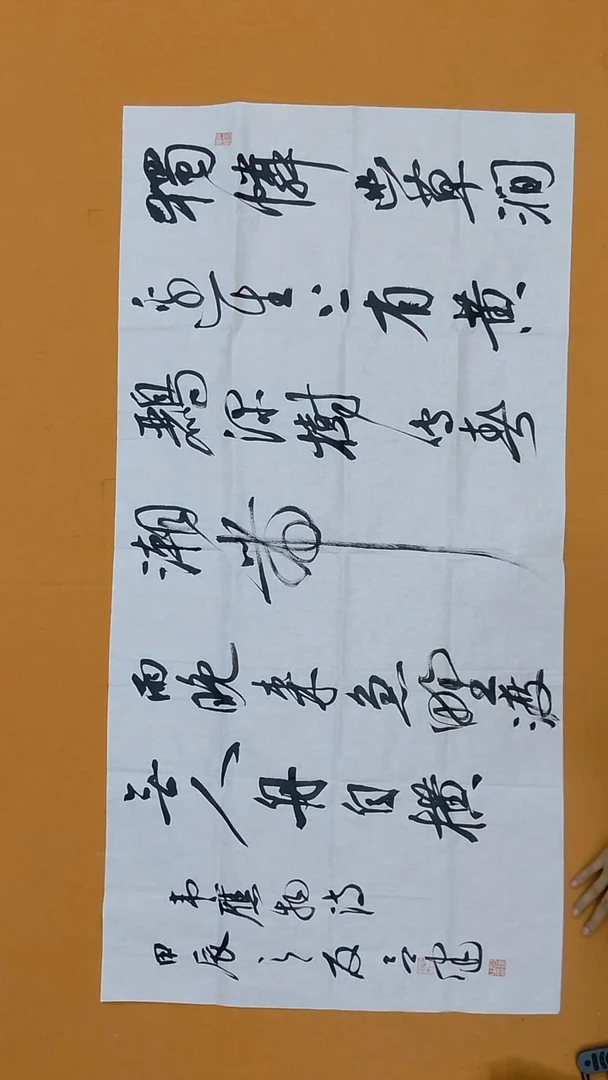 獨憐幽草澗
邊生上有黃
鸝深樹鳴春
潮帶
雨晚來急野渡
無人舟自橫
韋應物詩
甲辰之夏